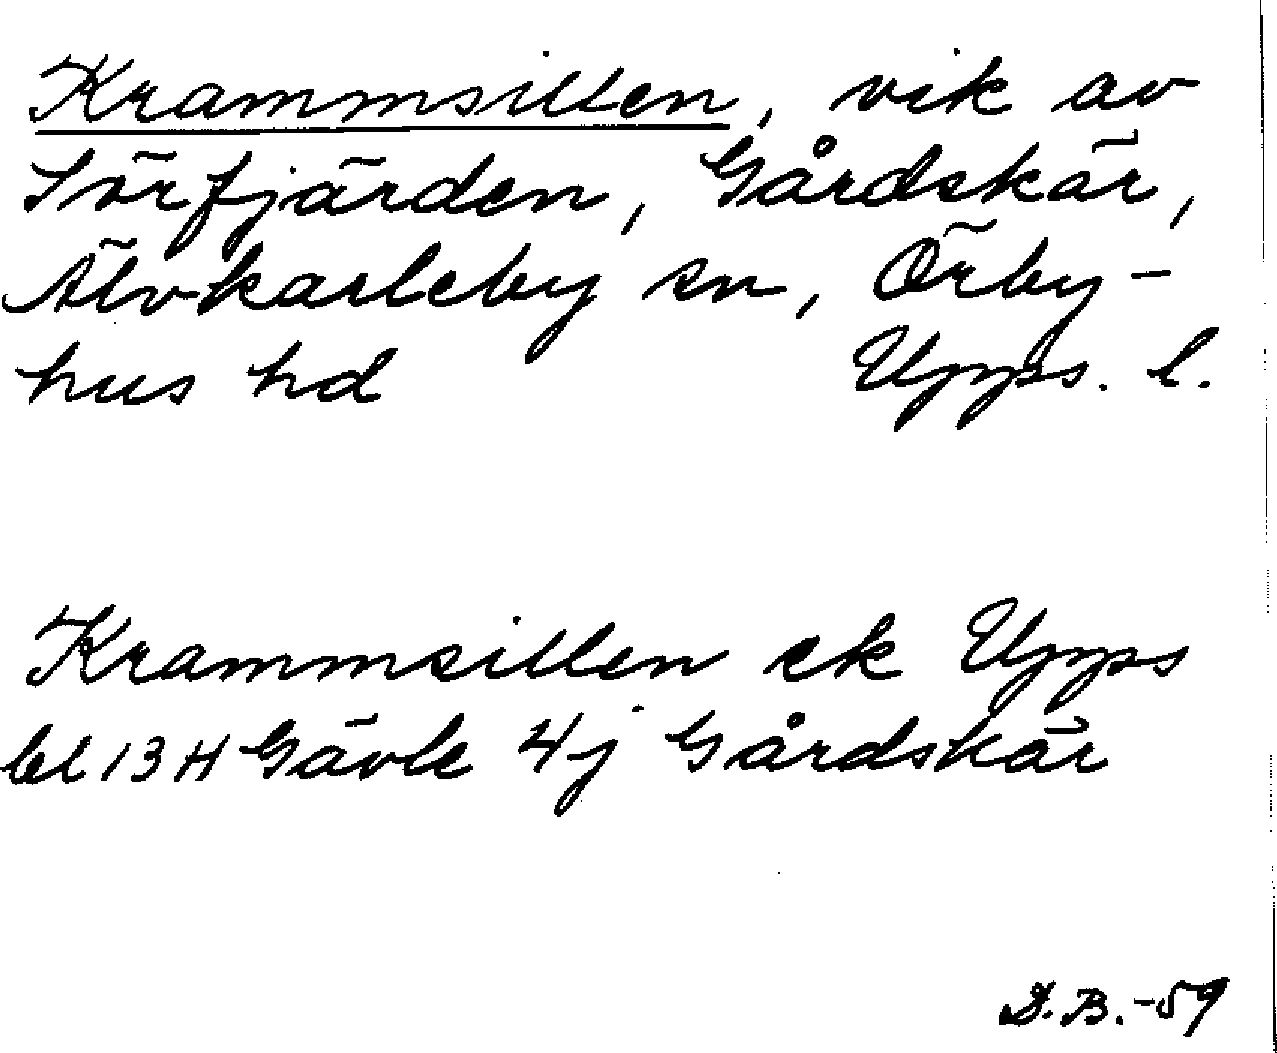 Krammsillen, vik av
Sörfjärden, Gårdskär,
Älvkarleby sn, Örby-
hus hd Upps. l.
Krammsillen ek Upps
bl 13 H Gävle 4j Gårdskär
D.B.-59